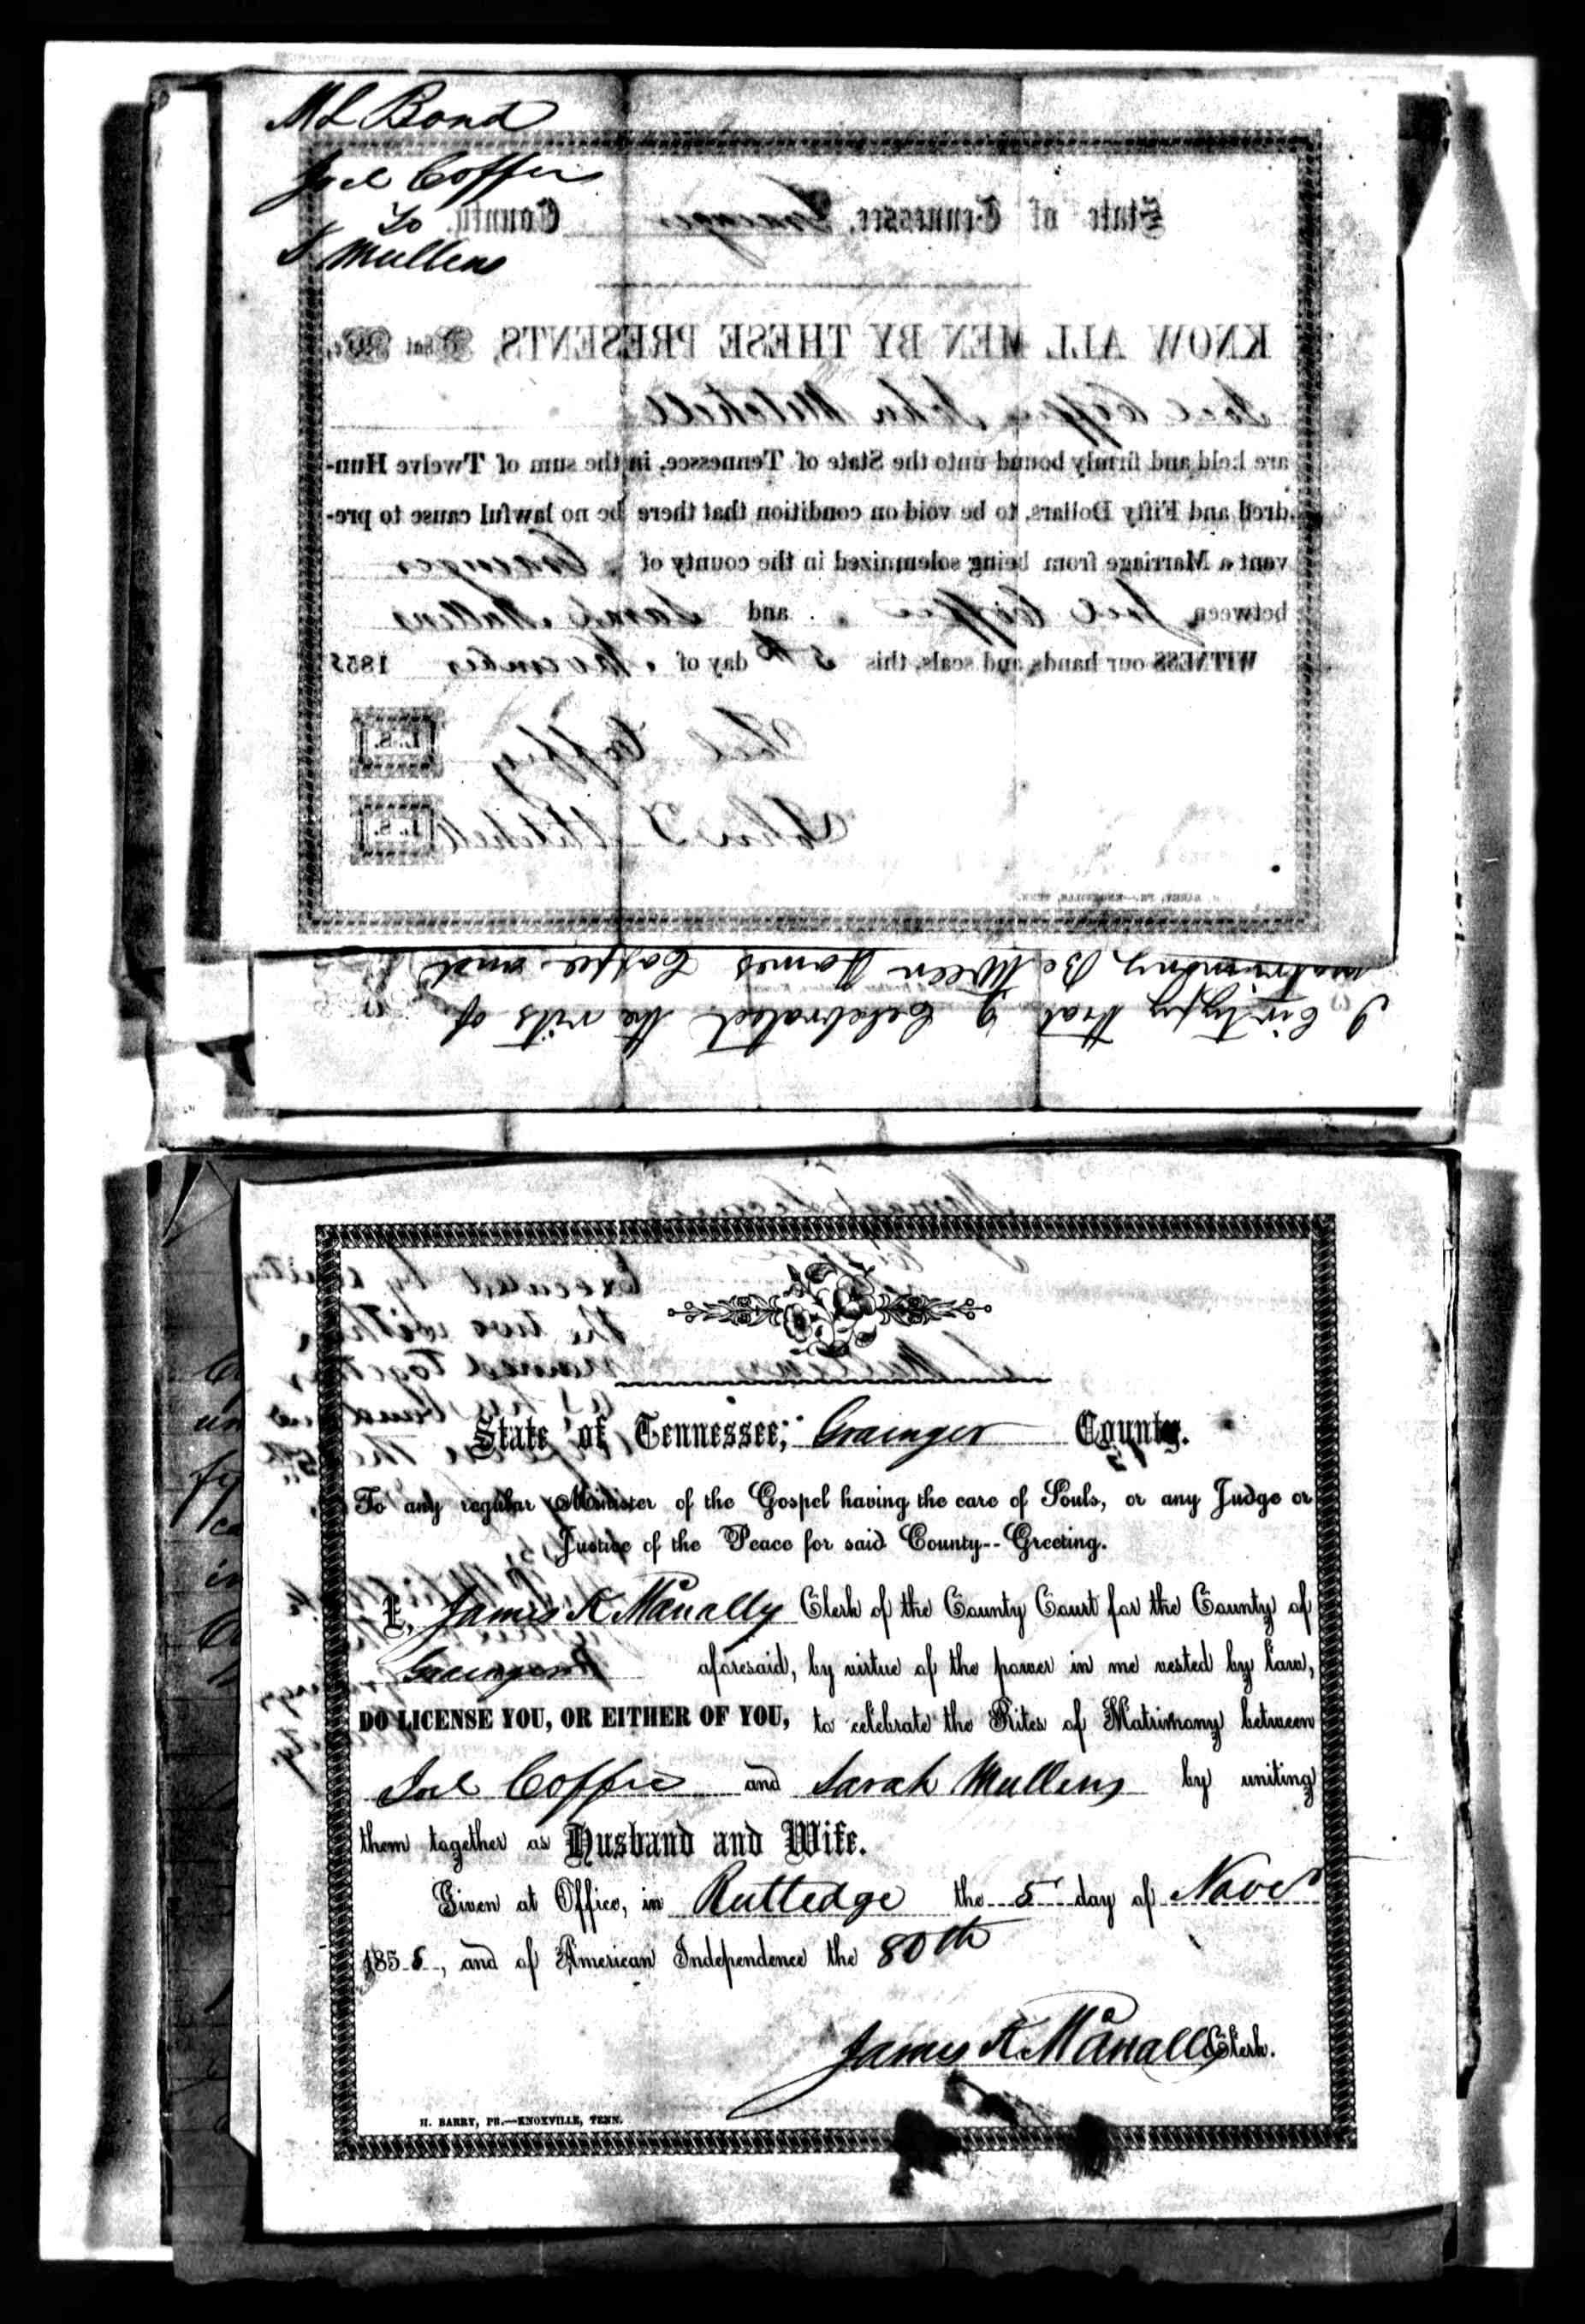 ML Bond
Joel Coffee
To
S Mullens
State of Tennessee, Grainger County.
KNOW ALL MEN BY THESE PRESENTS, That We,
Joel Coffee John Mitchell
are held and firmly bound unto the State of Tennessee, in the sum of Twelve Hun-
dred and Fifty Dollars, to be void on condition that there be no lawful cause to pre-
vent a Marriage from being solemnized in the county of Grainger
between Joel Coffee and Sarah Mullens
WITNESS our hands and seals, this 5th day of November 1855
Joel Coffey L. S.
John Mitchell L. S.
BARRY, PR.—KNOXVILLE, TENN.
I Certyfy that I Celebrated the rits of
matrimony Between James Coffee and
Executed by
the two
together
State of Tennessee; Grainger County.
To any regular Minister of the Gospel having the care of Souls, or any Judge or
Justice of the Peace for said County--Greeting.
I, James K McAnally Clerk of the County Court for the County of
Grainger aforesaid, by virtue of the power in me vested by law,
DO LICENSE YOU, OR EITHER OF YOU, to celebrate the Rites of Matrimony between
Joel Coffee and Sarah Mullens by uniting
them together as Husband and Wife.
Given at Office, in Rutledge the 5 day of Novr
1855, and of American Independence the 80th
James K McAnally Clerk.
H. BARRY, PR.—KNOXVILLE, TENN.